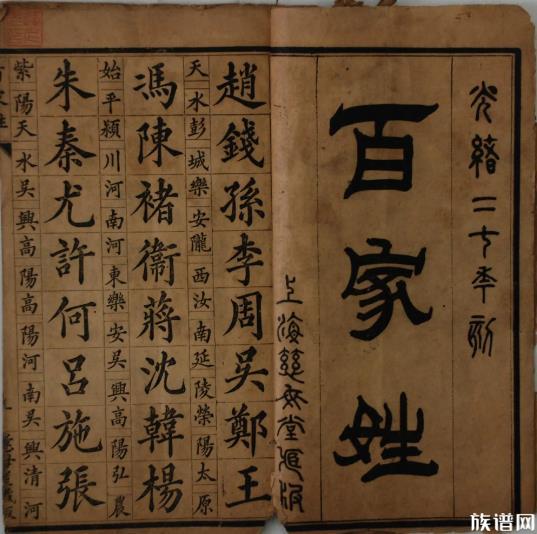 光緒二七年刻
百家姓
上海慈母堂版
趙錢孫李周吳鄭王
天水彭城樂安隴西汝南延陵榮陽太原
馮陳褚衛蔣沈韓楊
始平潁川河南河東樂安吳興高陽弘農
朱秦尤許何呂施張
紫陽天水吳興高陽高陽河南吳興清河
百家姓
族谱网